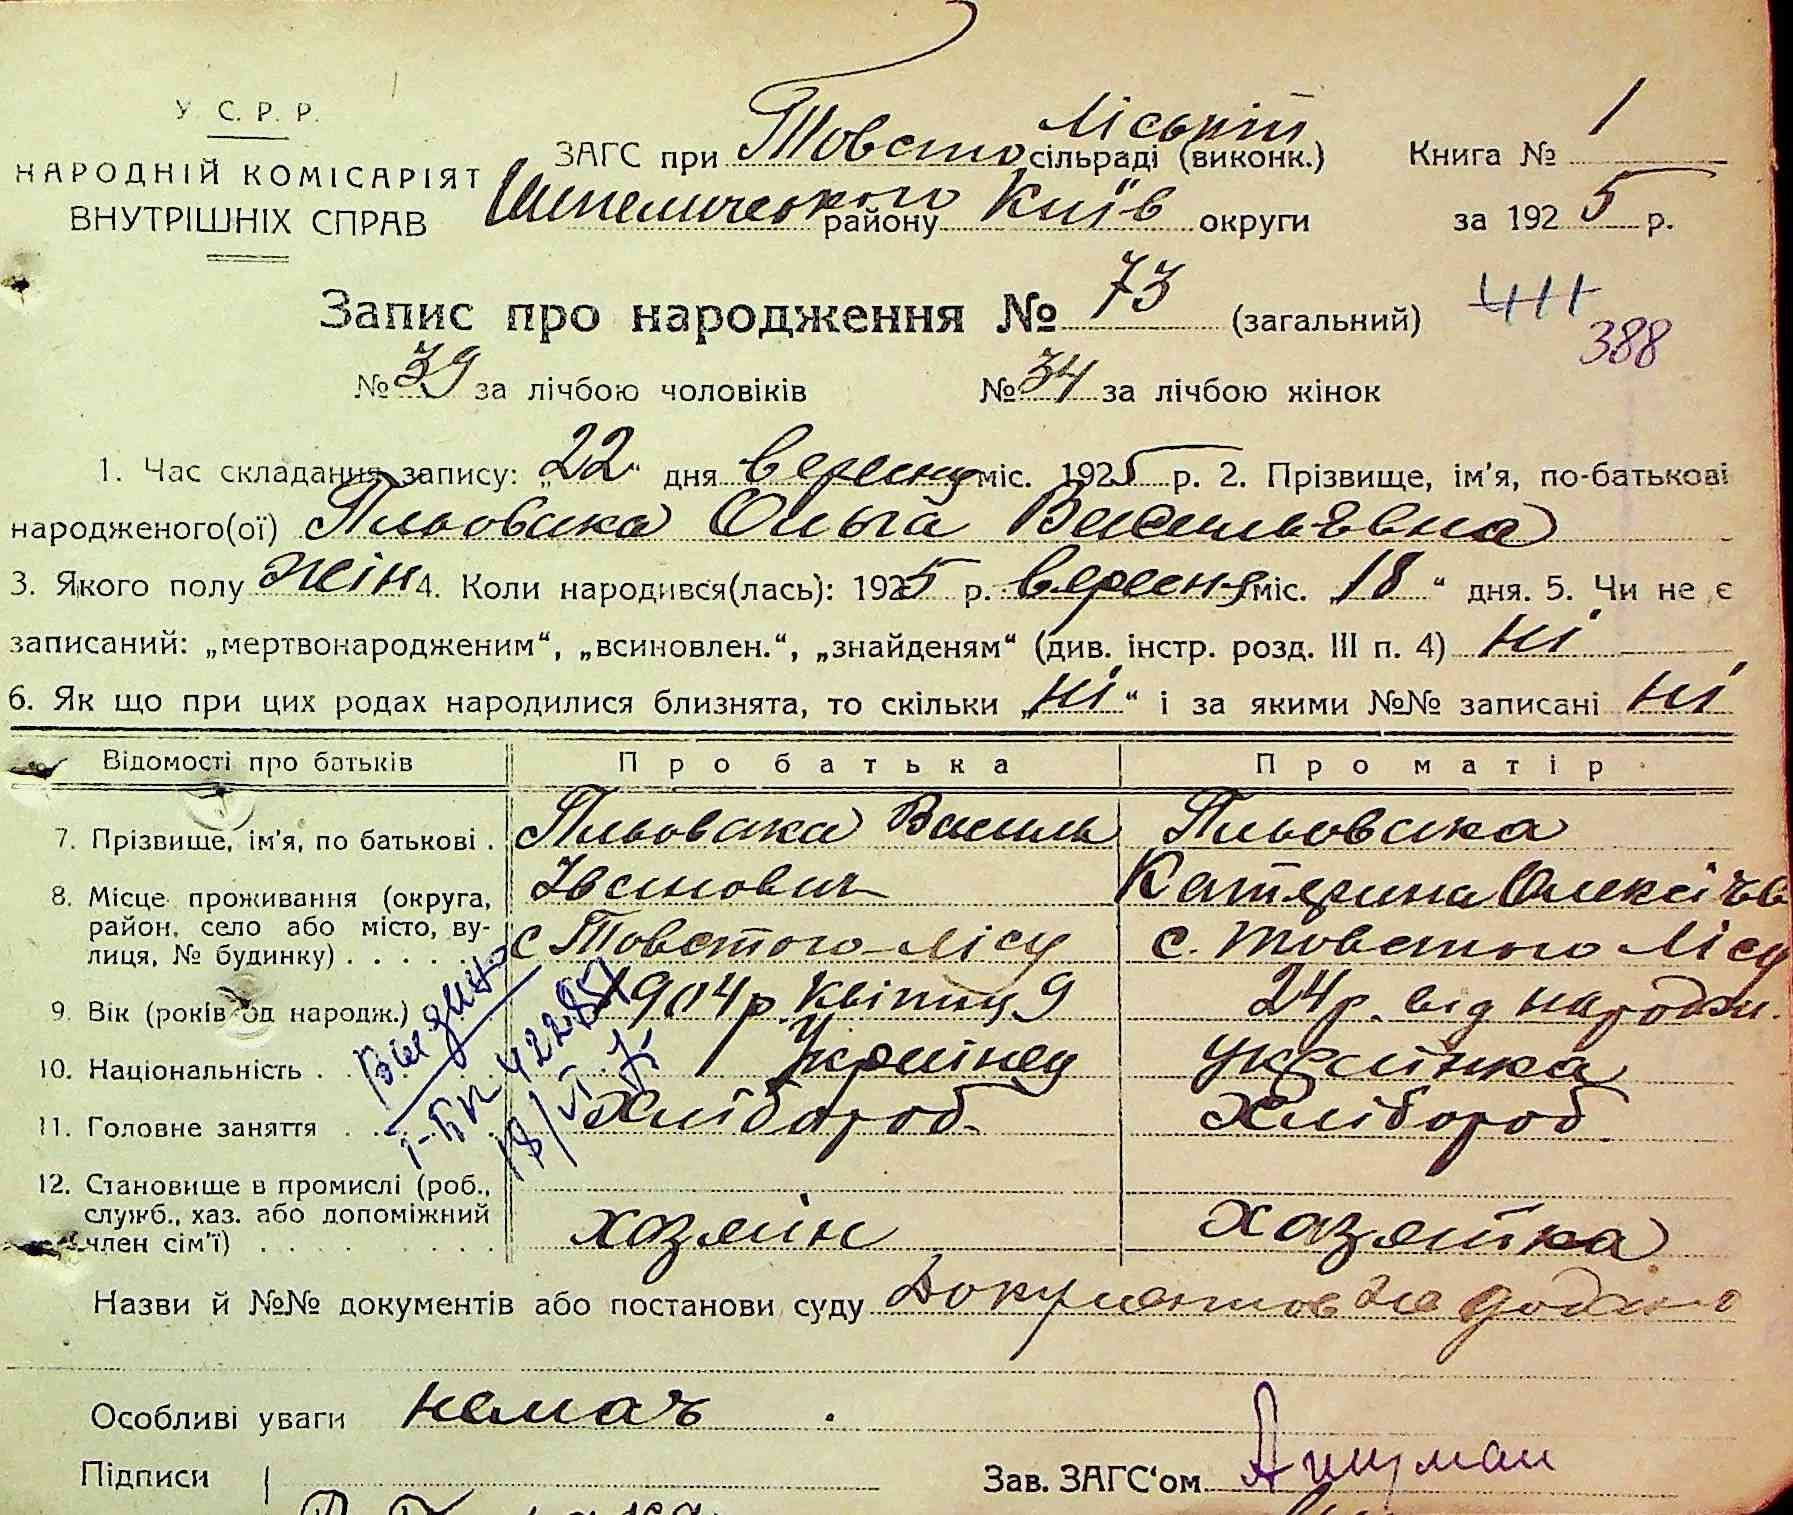 У. С. Р. Р.
НАРОДНІЙ КОМІСАРІЯТ
ВНУТРІШНІХ СПРАВ
ЗАГС при Товстоліський сільраді (виконк.)
Шепелического району Київ округи
Книга № 1
за 1925 р.
Запис про народження № 73 (загальний)
411
388
№ 39 за лічбою чоловіків № 34 за лічбою жінок
1. Час складання запису: „22“ дня вересня міс. 1925 р. 2. Прізвище, ім'я, по-батькові
народженого(ої) Ольга Васильевна
3. Якого полу жін 4. Коли народився(лась): 1925 р. вересня міс. „18“ дня. 5. Чи не є
записаний: „мертвонародженим“, „всиновлен.“, „знайденям“ (див. інстр. розд. III п. 4) ні
6. Як що при цих родах народилися близнята, то скільки „ні“ і за якими №№ записані ні
Відомості про батьків Про батька Про матір
7. Прізвище, ім'я, по батькові . Василь
Іванович Катярина
8. Місце проживання (округа,
район, село або місто, ву-
лиця, № будинку) . . . . . . с Товстого-Лісу с. Товстого Лісу
9. Вік (років од народж.) 1904 р. Квітня 9 24 р. від народж.
10. Національність . Українец Українка
11. Головне заняття . . Хлібороб Хлібороб
12. Становище в промислі (роб.,
служб., хаз. або допоміжний
член сім'ї) . . . . . . . . . хазяін хазяйка
18/VI
Назви й №№ документів або постанови суду Документов не
Особливі уваги немає
Підписи
Зав. ЗАГС'ом